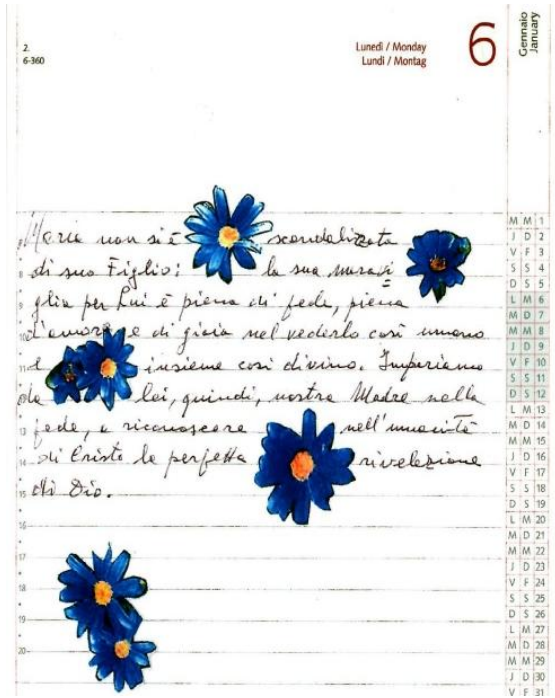 2.
6-360
Lunedì / Monday
Lundi / Montag
6
Gennaio
January
Maria non si è scandalizzata
di suo Figlio: la sua meravi
glia per Lui è piena di fede, piena
d'amore e di gioia nel vederlo così umano
e insieme così divino. Impariamo
da lei, quindi, nostra Madre nella
fede, a riconoscere nell'umanità
di Cristo la perfetta rivelazione
di Dio.
8
9
10
11
12
13
14
15
16
17
18
19
20
M M 1
J D 2
V F 3
S S 4
D S 5
L M 6
M D 7
M M 8
J D 9
V F 10
S S 11
D S 12
L M 13
M D 14
M M 15
J D 16
V F 17
S S 18
D S 19
L M 20
M D 21
M M 22
J D 23
V F 24
S S 25
D S 26
L M 27
M D 28
M M 29
J D 30
V F 31